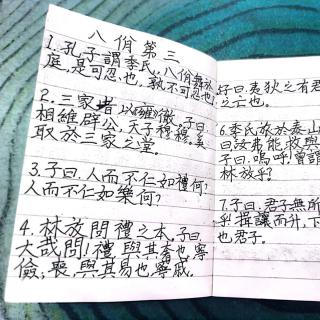 八佾第三
1.孔子謂季氏,八佾舞於
庭,是可忍也,孰不可忍也!
2.三家者以《雍》徹,子曰
相維辟公,天子穆穆,奚
取於三家之堂。
3.子曰.人而不仁如禮何?
人而不仁如樂何?
4.林放問禮之本.子曰
大哉問!禮,與其奢也,寧
儉;喪,與其易也,寧戚。
子曰.夷狄之有君
之亡也。
6.季氏旅於泰山
曰汝弗能救與
子曰.嗚呼!曾謂
林放乎?
7.子曰.君子無所
乎!揖讓而升,下
也君子。